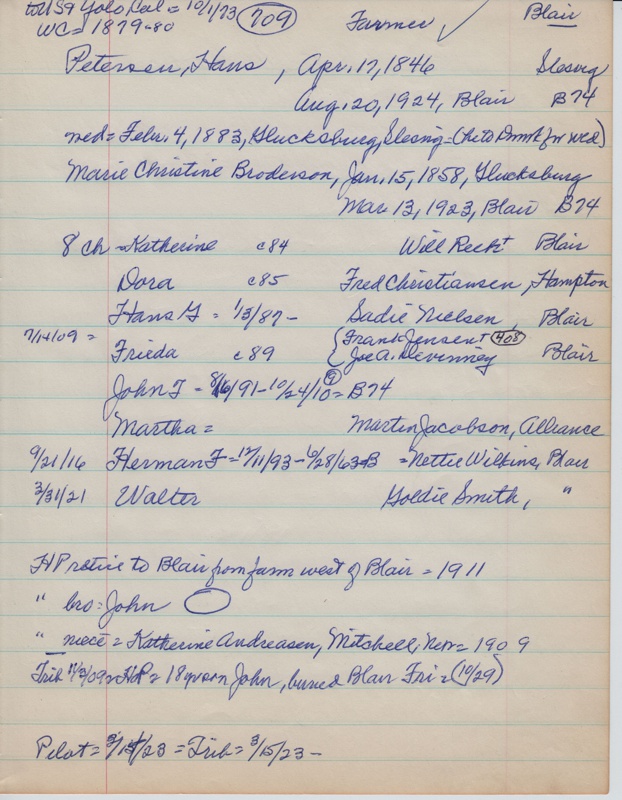 to USA Yolo Cal = 10/1/73 709 Farmer ✓ Blair
WC = 1879-80
Petersen, Hans, Apr. 17, 1846 Slesvig
Aug. 20, 1924, Blair B74
wed = Febr. 4, 1883, Glucksburg, Slesvig = (he to Dnmk for wed)
Marie Christine Broderson, Jan. 15, 1858, Glucksburg
Mar 13, 1923, Blair B74
8 ch = Katherine c84 Will Reckt Blair
Dora c85 Fred Christiansen, Hampton
Hans G = 1/3/87 - Sadie Nielsen, Blair
7/14/09 = Frieda c89 { Frank Jensen + 408
Joe A. Devenney Blair
John F = 8/6/91 - 10/24/10 = B74
Martha = Martin Jacobson, Alliance
9/21/16 Herman F = 12/11/93 - 6/28/63 = B = Nettie Wilkins, Blair
3/31/21 Walter Goldie Smith, "
HP retire to Blair from farm west of Blair = 1911
" bro = John
" niece = Katherine Andreasen, Mitchell, Nebr = 1909
Trib 11/3/09 = HP = 18 yr son John, buried Blair Fri = (10/29)
Pilot = 3/14/23 = Trib = 3/15/23 -